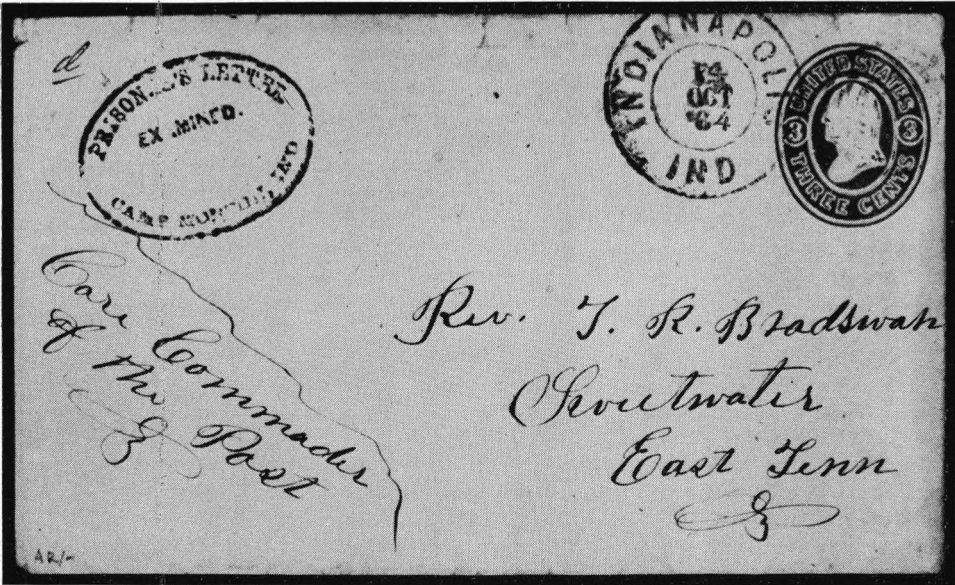 d
PRISONER'S LETTER
EXAMINED.
CAMP MORTON, IND
INDIANAPOLI
14
OCT
'64
IND
UNITED STATES
3 3
THREE CENTS
Care Commader
of the Post
Rev. T. R. Bradshaw
Sweetwater
East Tenn
AR/-